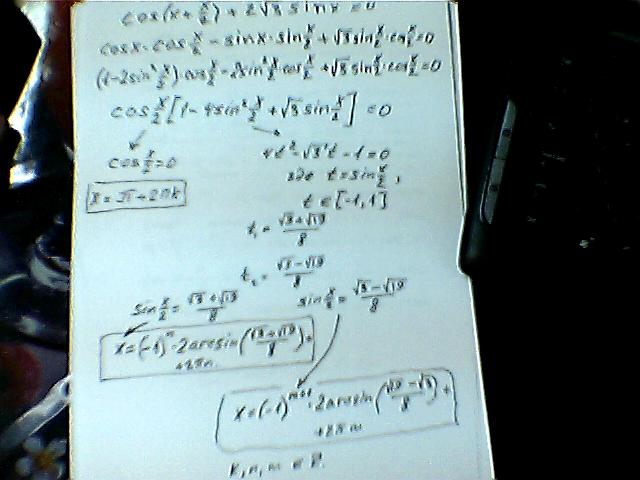 cos(x + x/2) + 2√3 sin x = 0
cosx·cos x/2 − sinx·sin x/2 + √3 sin x/2·cos x/2 = 0
(1−2sin² x/2)·cos x/2 − 2sin² x/2·cos x/2 + √3 sin x/2·cos x/2 = 0
cos x/2 [1 − 4sin² x/2 + √3 sin x/2] = 0
cos x/2 = 0
4t² − √3 t − 1 = 0
где t = sin x/2,
x = π + 2πk
t ∈ [−1,1]
t₁ = (√3+√19)/8
t₂ = (√3−√19)/8
sin x/2 = (√3+√19)/8
sin x/2 = (√3−√19)/8
x = (−1)ⁿ·2arcsin((√3+√19)/8) +
+2πn
x = (−1)ᵐ⁺¹·2arcsin((√19−√3)/8) +
+2πm
k, n, m ∈ Z.